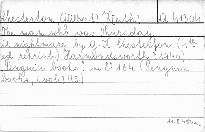 Chesterton (Gilbert) Keith:
The man who was Thursday.
A nightmare by G. K. Chesterton. (4th
ed. reprint) Harmondsworth, (1940)
(Penguin books) in 8° 184 (Penguin
books, vol. 95)